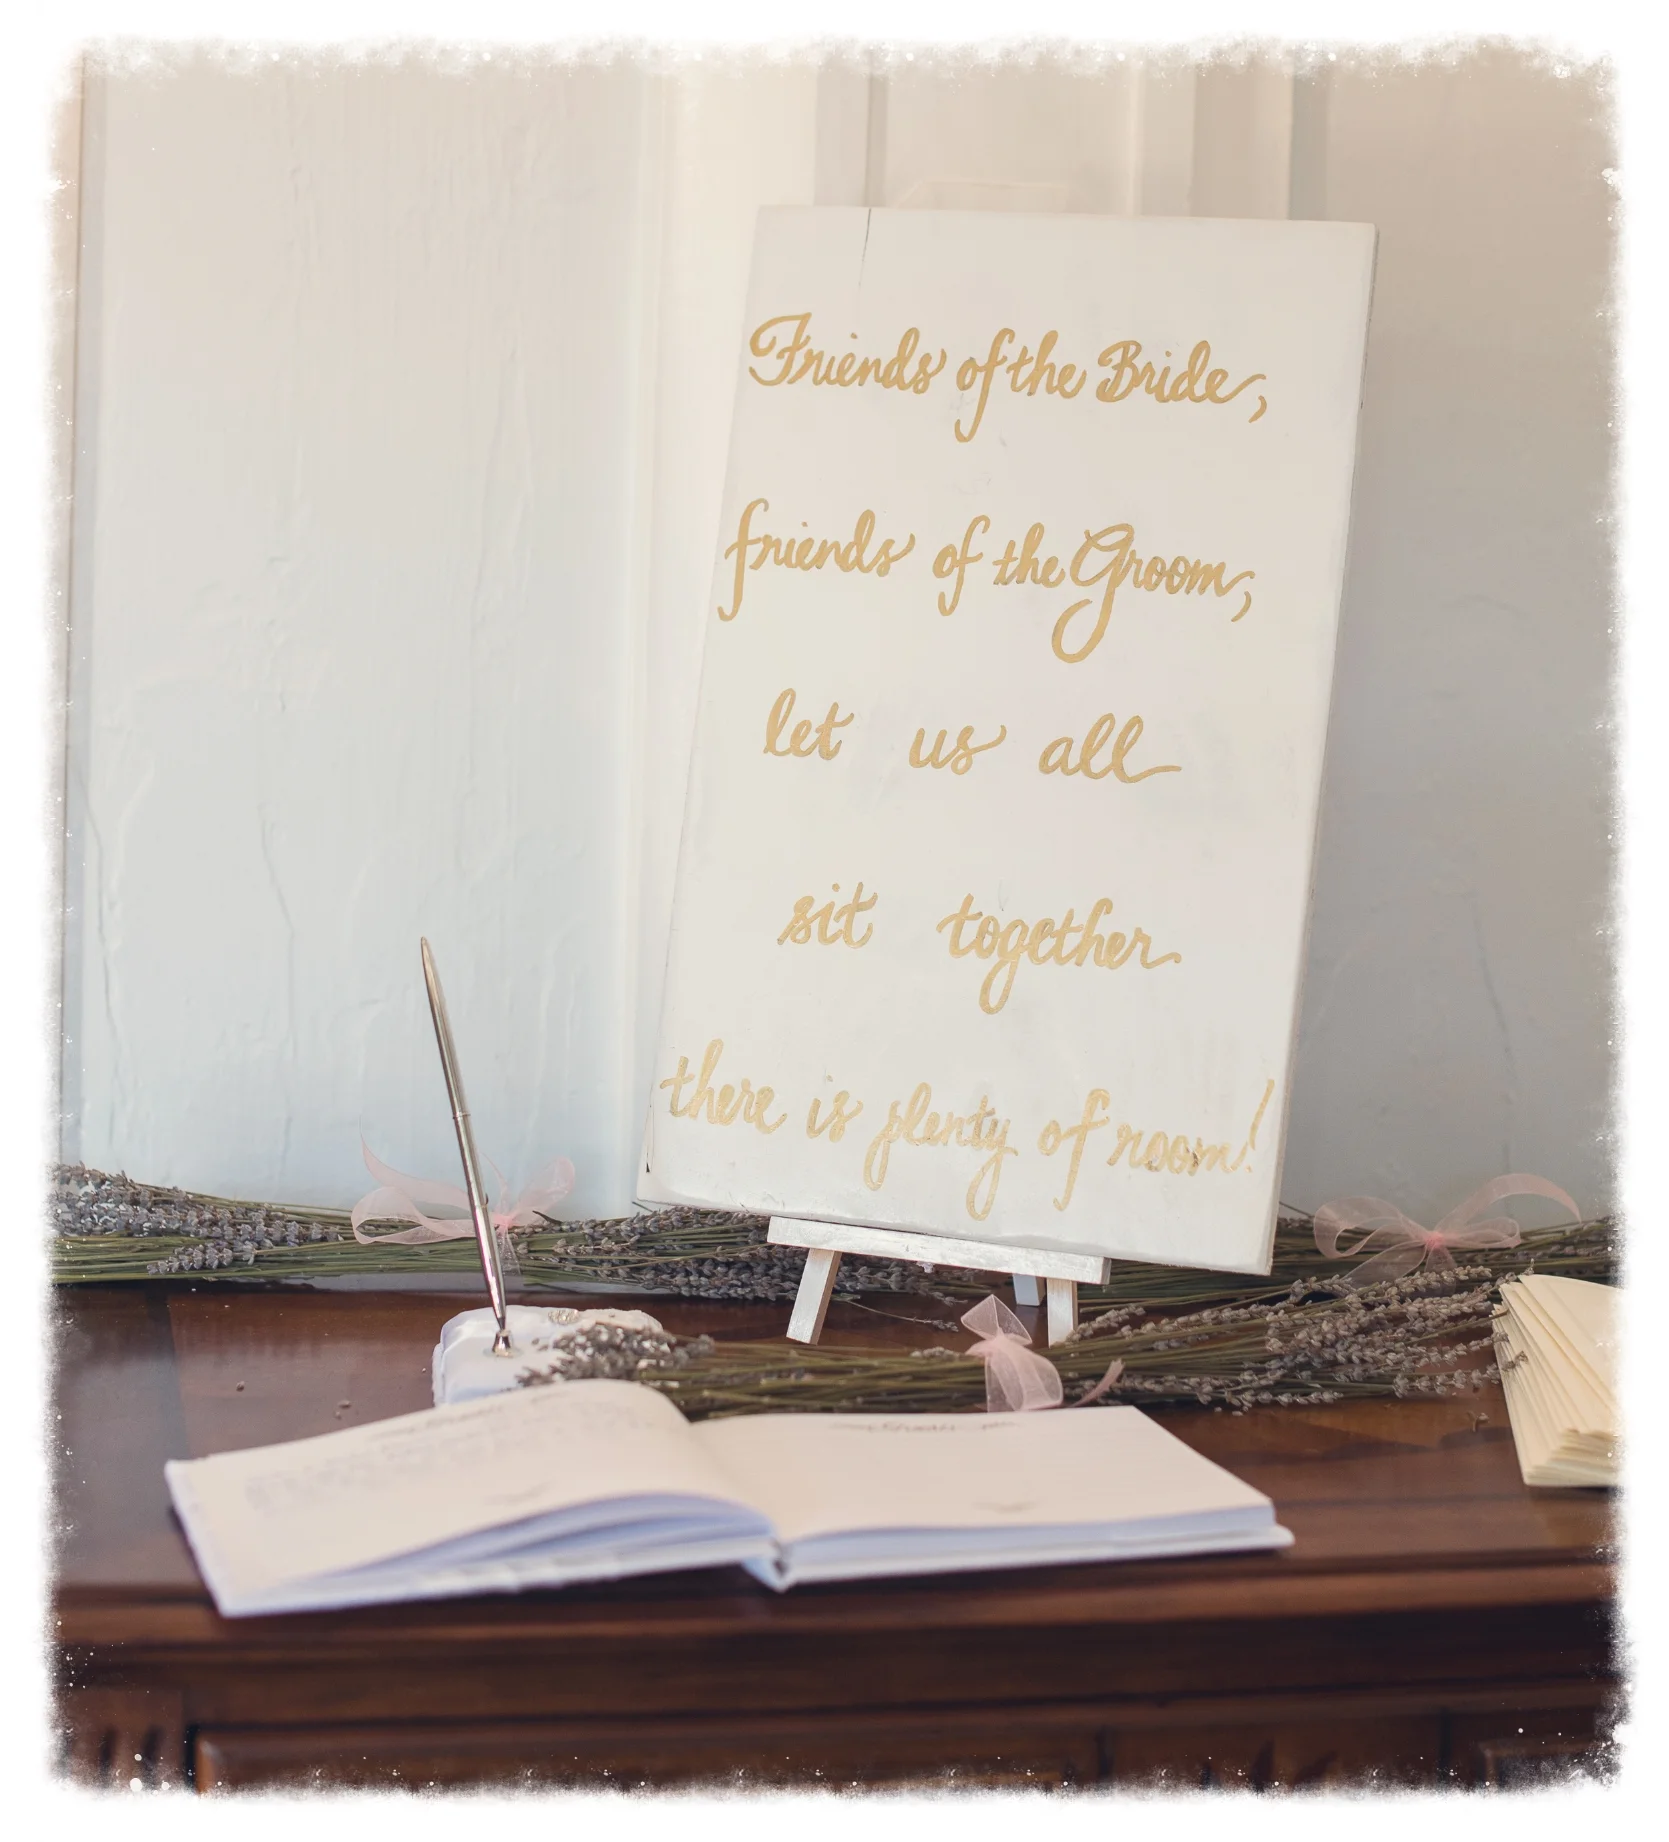 Friends of the Bride,
friends of the Groom,
let us all
sit together
there is plenty of room!